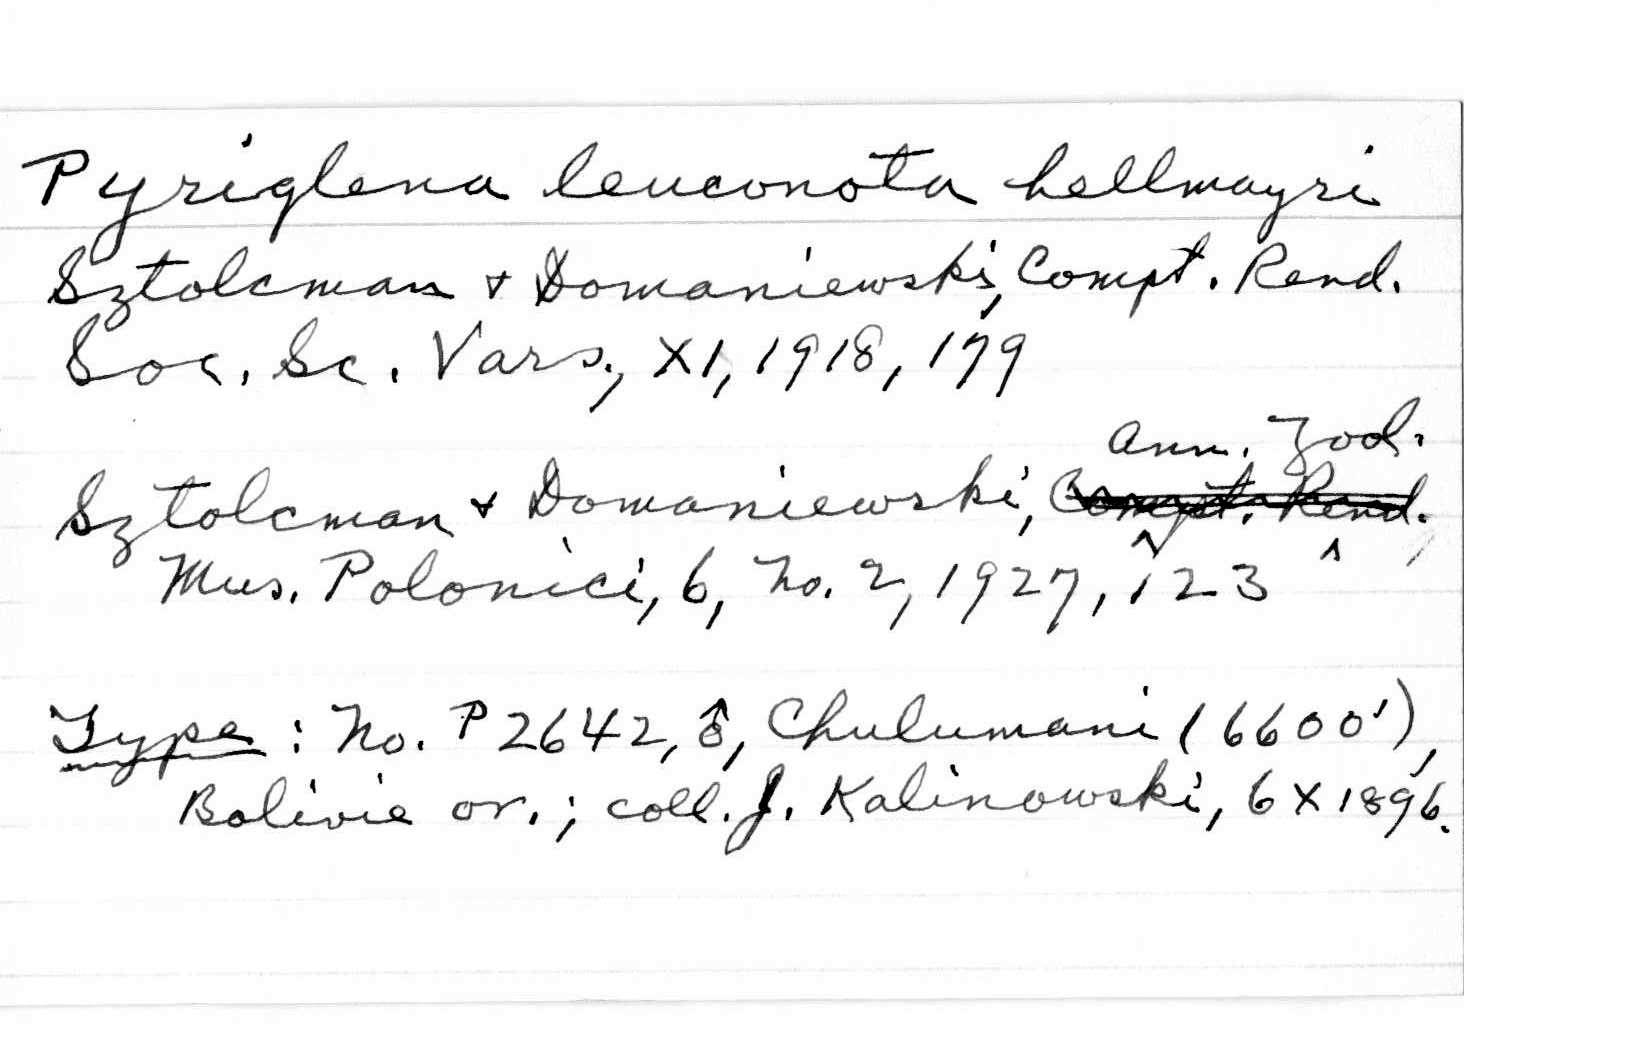 Pyriglena leuconota hellmayri
Sztolcman & Domaniewski, Compt. Rend.
Soc. Sc. Vars., XI, 1918, 179
Ann. Zool.
Sztolcman & Domaniewski, Compt. Rend.
Mus. Polonici, 6, No. 2, 1927, 123
Type: No. P2642, ♂, Chulumani (6600'),
Bolivie or.; coll. J. Kalinowski, 6 X 1896.